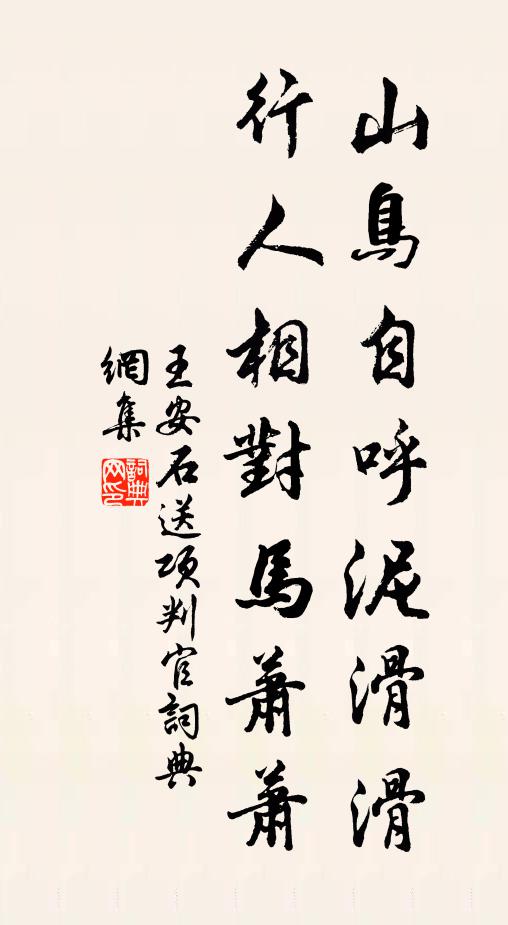 山鳥自呼泥滑滑
行人相對馬蕭蕭
王安石送項判官詞典
網集
詞典網印